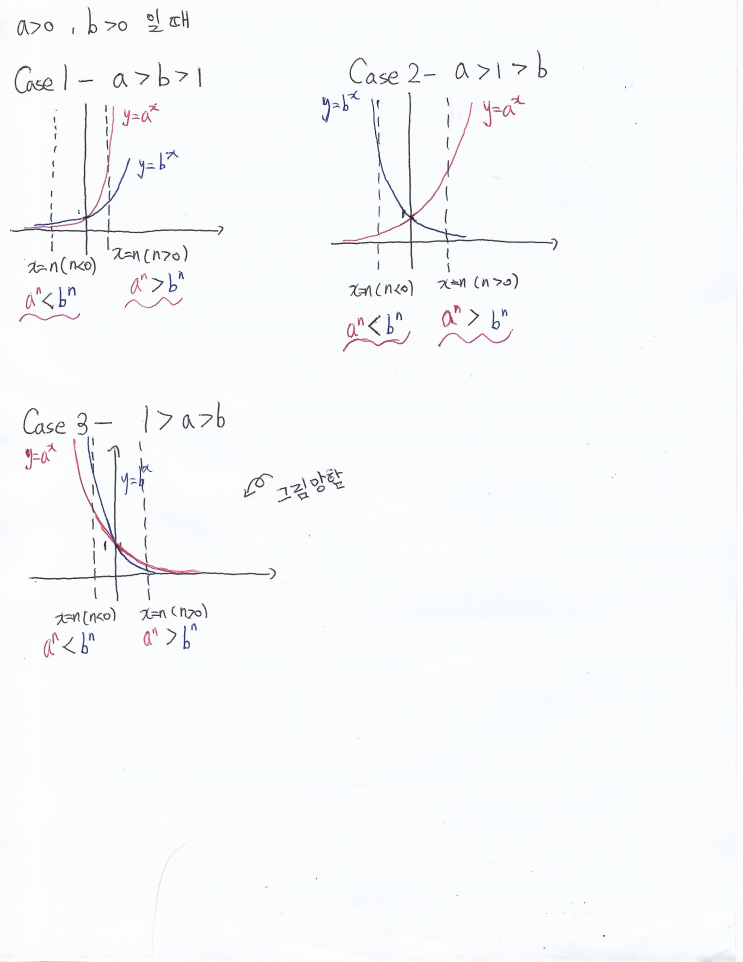 a>0 , b>0 일때
Case 1 - a > b > 1
y=a^x
y=b^x
x=n(n<0) x=n(n>0)
a^n<b^n a^n>b^n
Case 2 - a > 1 > b
y=b^x y=a^x
1
x=n(n<0) x=n(n>0)
a^n<b^n a^n > b^n
Case 3 - 1 > a > b
y=a^x
y=b^x
그림망함
1
x=n(n<0) x=n(n>0)
a^n<b^n a^n>b^n